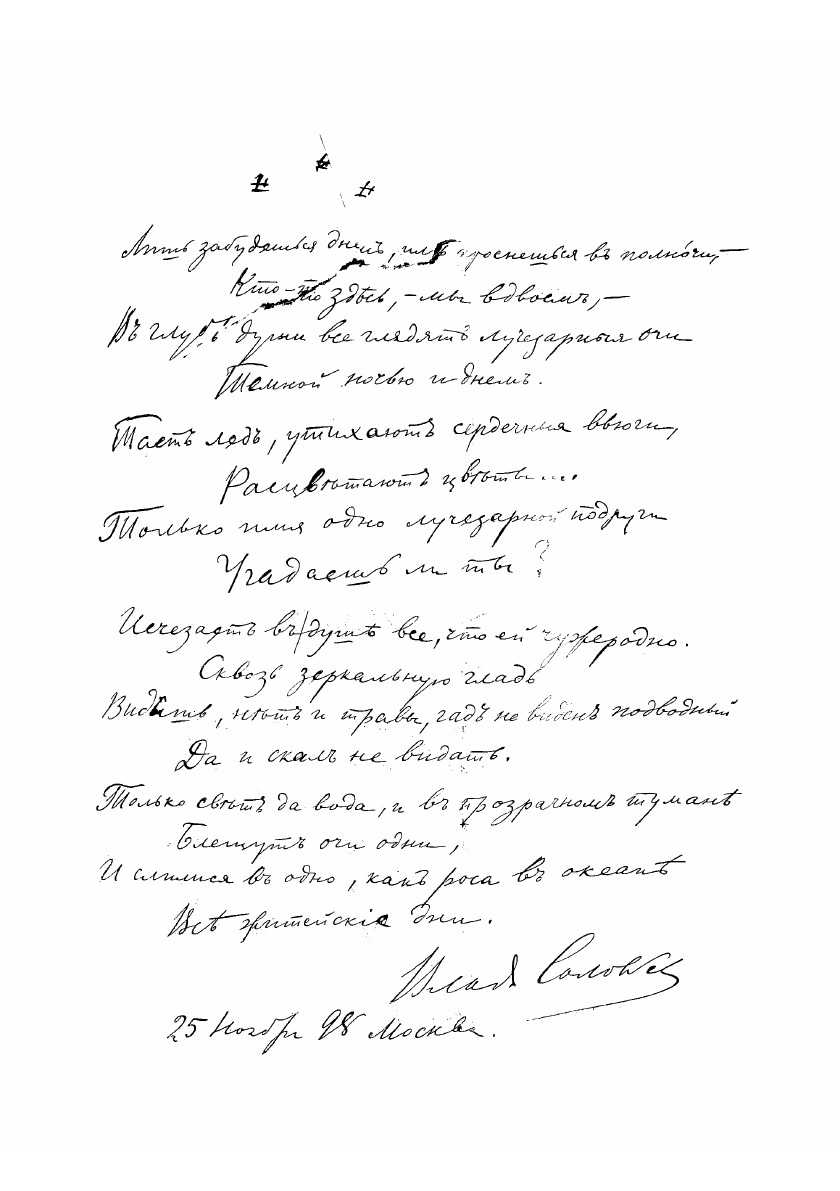 Лишь забудешься днемъ, иль проснешься въ полно́чи,—
Кто-то здѣсь, – мы вдвоемъ,—
Въ глубь души все глядятъ лучезарныя очи
Темной ночью и днемъ.
Таетъ ледъ, утихаютъ сердечныя вьюги,
Расцвѣтаютъ цвѣты....
Только имя одно лучезарной подруги
Угадаешь ли ты?
Исчезаетъ въ душѣ все, что ей чужеродно.
Сквозь зеркальную гладь
Видишь, нѣтъ и травы, гадъ не виденъ подводный
Да и скалъ не видать.
Только свѣтъ да вода, и въ прозрачномъ туманѣ
Блещутъ очи одни,
И слилися въ одно, какъ роса въ океанѣ
Всѣ житейскіе дни.
Влад Соловьев
25 Ноябр 98 Москва.